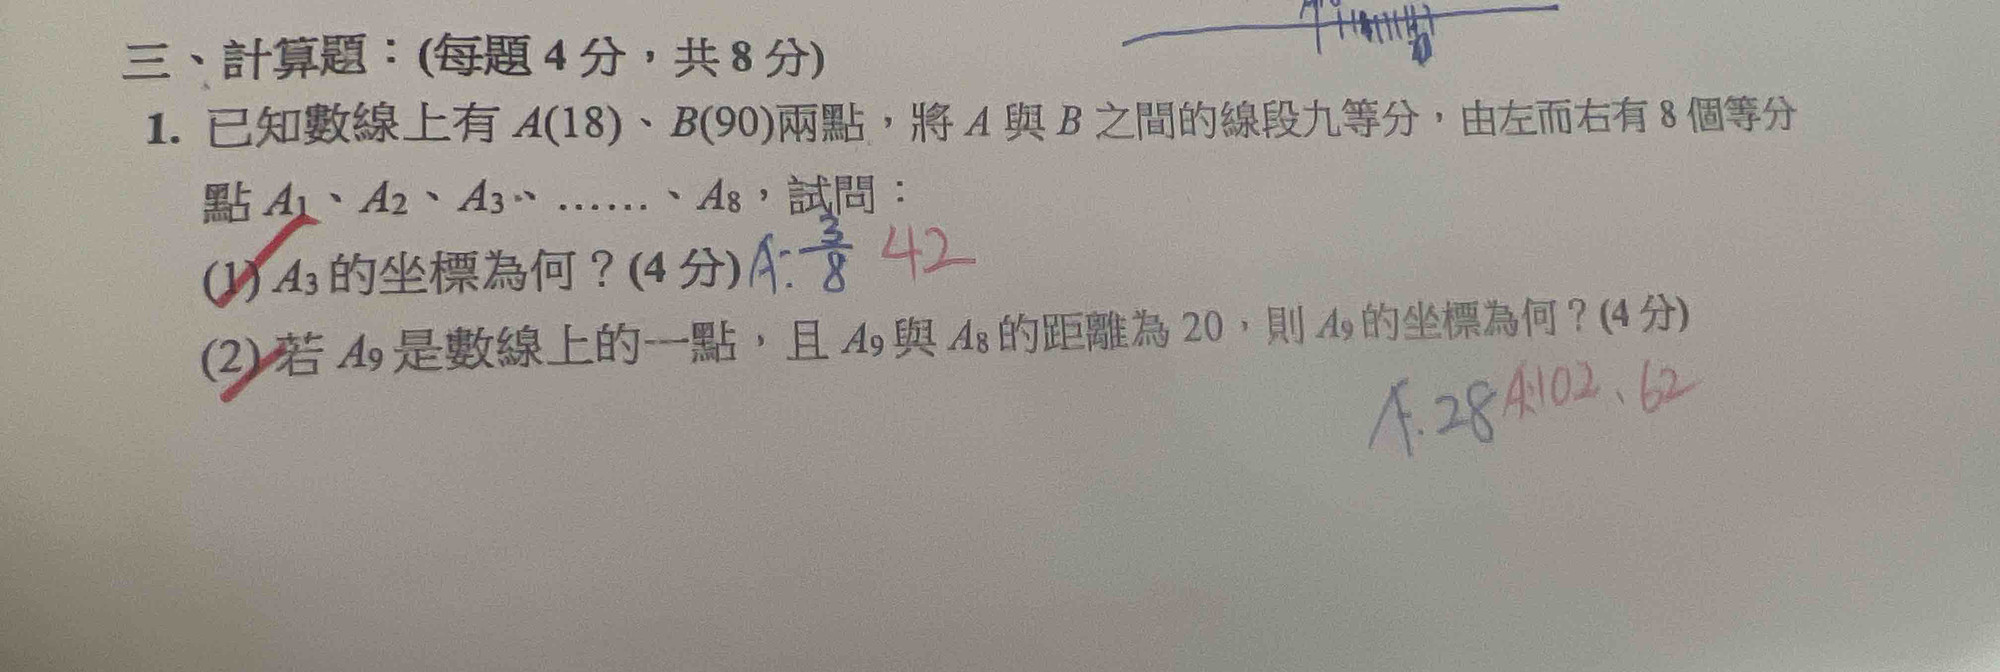 三、計算題：(每題 4 分，共 8 分)
1. 已知數線上有 A(18)、B(90)兩點，將 A 與 B 之間的線段九等分，由左而右有 8 個等分
點 A1、A2、A3、……、A8，試問：
(1) A3 的坐標為何？(4 分) A: 3/8 42
(2) 若 A9 是數線上的一點，且 A9 與 A8 的距離為 20，則 A9 的坐標為何？(4 分)
A: 28 A:102、62